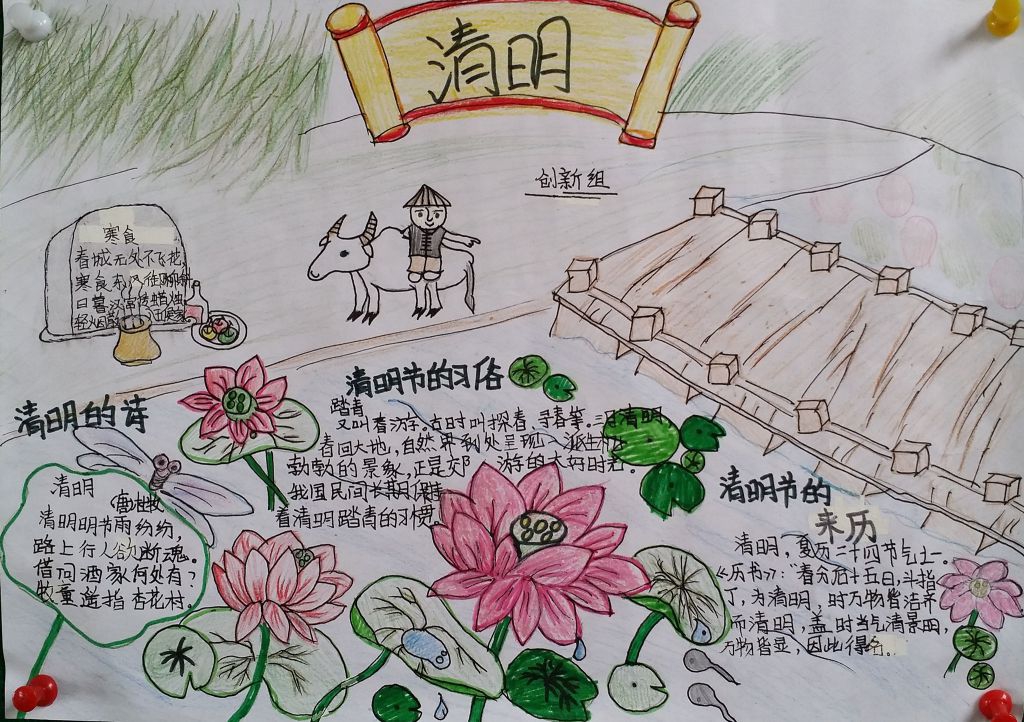 清明
创新组
寒食
春城无处不飞花,
寒食东风御柳斜
日暮汉宫传蜡烛
轻烟
清明的诗
清明
唐 杜牧
清明明节雨纷纷,
路上行人欲断魂。
借问酒家何处有?
牧童遥指杏花村.
清明节的习俗
踏青
又叫春游,古时叫探春、寻春等。三月清明,
春回大地,自然界到处呈现一派生机
勃勃的景象,正是郊 游的大好时
我国民间长期保持
着清明踏青的习惯
清明节的
来历
清明,夏历二十四节气之一。
《历书》:“春分后十五日,斗指
丁,为清明,时万物皆洁齐
而清明,盖时当气清景明,
万物皆显,因此得名.